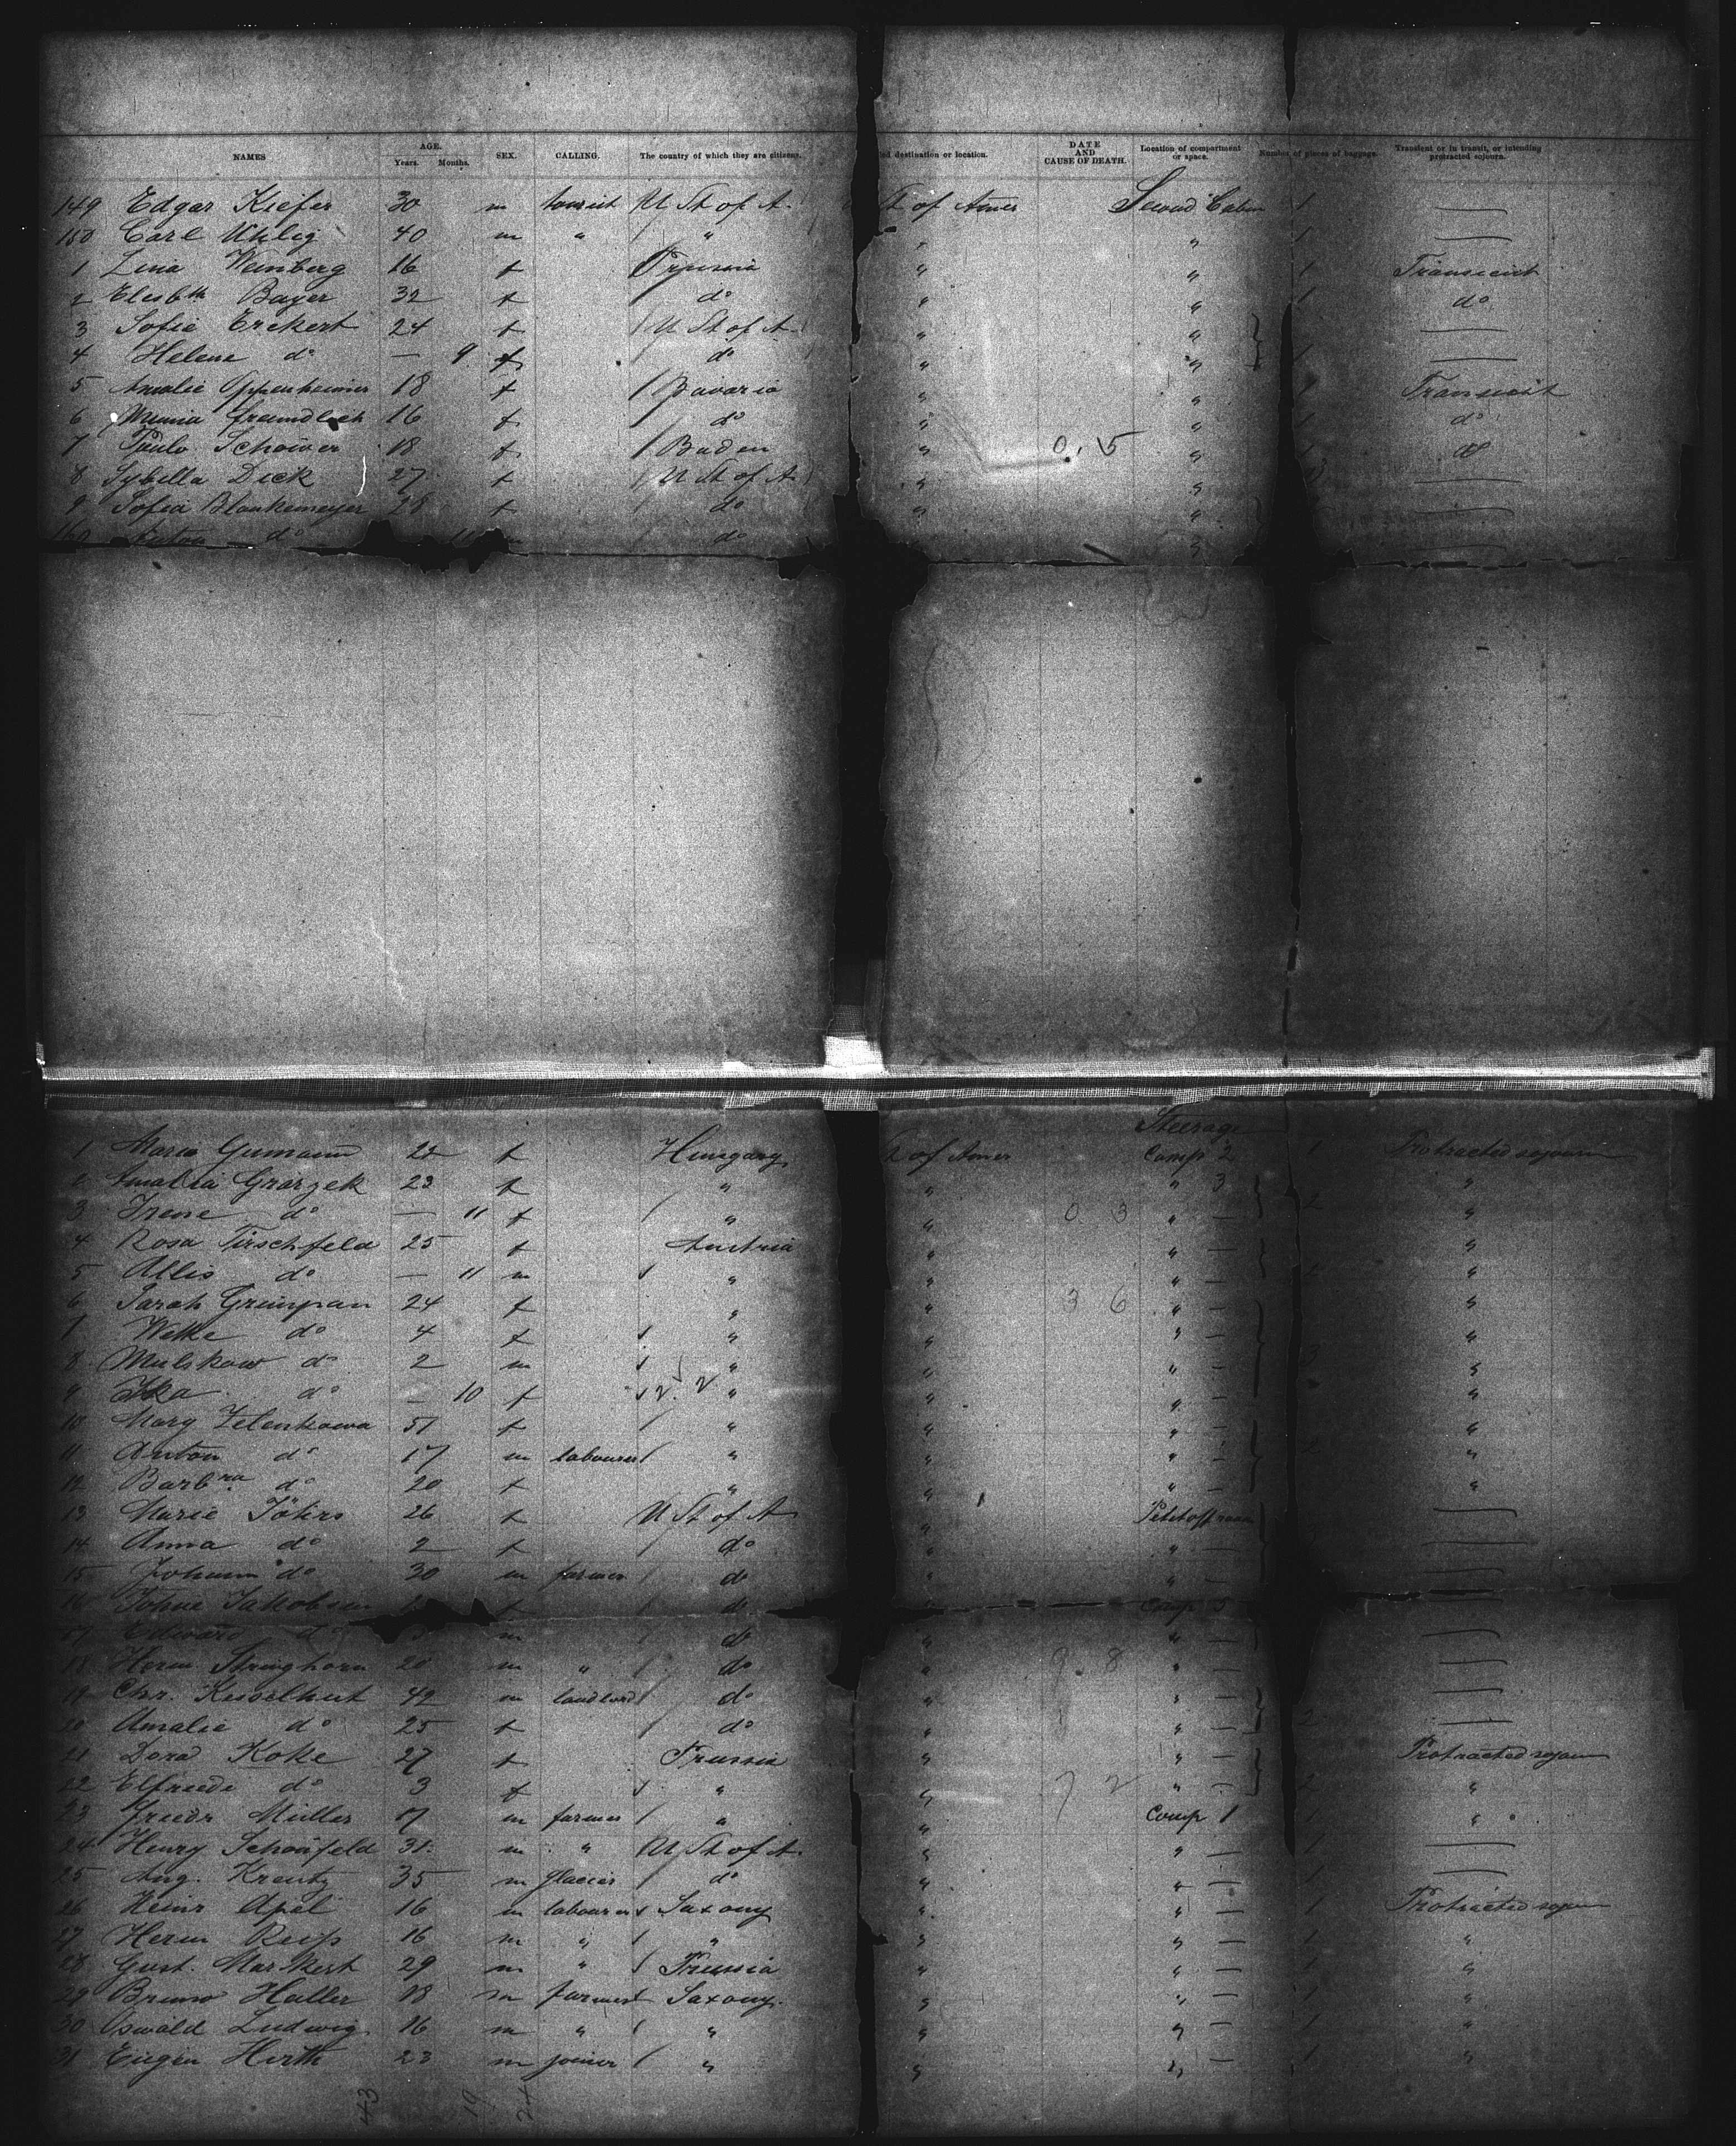 NAMES AGE. Years. Months. SEX. CALLING. The country of which they are citizens. ed destination or location. DATE AND CAUSE OF DEATH. Location of compartment or space. Number of pieces of baggage. Transient or in transit, or intending protracted sojourn.
149 Edgar Kiefer 30 m tourist U St of A. St of Amer Second Cabin 1 —
150 Carl Uhlig 40 m " " " " 1 —
1 Lina Weinberg 16 f Prussia " " 1 Transient
2 Elisbth Bayer 32 f do " " 1 do
3 Sofie Erckert 24 f U St of A. " " —
4 Helene do — 9 f do " " 1 —
5 Amalie Oppenheimer 18 f Bavaria " " 1 Transient
6 f 16 do " " 1 do
7 18 f Baden " 0. 5 " 1 do
8 Sybilla Dick 27 f U St of A " " —
9 Sofia Blankemeyer 28 f do " " —
160 Anton do 11 m do " —
Steerage
1 Marie 22 f Hungary St of Amer Comp 2 1 Protracted sojourn
2 Amalia 23 f " " " 3 "
3 Irene do — 11 f " " 0. 3 " — 2 "
4 Rosa 25 f Austria " " — "
5 do — 11 m " " " — 1 "
6 Sarah Grünspan 24 f " " 3 6 " — "
7 do 4 f " " " — "
8 do 2 m " " " — 3 "
9 do — 10 f 2. 2 " " " — "
10 Mary Zelenkowa 51 f " " " — "
11 Anton do 17 m labourer " " " — 2 "
12 Barbra do 20 f " " " — "
13 Marie 26 f U St of A " —
14 Anna do 2 f do " " — —
15 Johann do 30 m farmer do " " — —
16 f do " Comp 5
17 Edward do m do " " — —
18 Herm. 20 m " do " 9. 8 " — —
19 Chr. Kesselhut 42 m landlord do " " — —
20 Amalie do 25 f do " " — 2 —
21 Dora Koke 27 f Prussia " " — Protracted sojourn
22 Elfriede do 3 f " " 7 2 " — 2 "
23 Friedr Müller 17 m farmer " " Comp 1 1 "
24 Henry Schönfeld 31 m " U St of A. " " — 1 —
25 Aug. Kreutz 35 m glacier do " " — 1 —
26 Heinr Apel 16 m labourer Saxony " " — 1 Protracted sojourn
27 Herm 16 m " " " " — 1 "
28 Gust. Markert 29 m " Prussia " " — 1 "
29 Bruno Haller 18 m farmer Saxony. " " — 1 "
30 Oswald Ludwig 16 m " " " " — 1 "
31 Eugen Hirth 23 m joiner " " " — 1 "
43 19 24